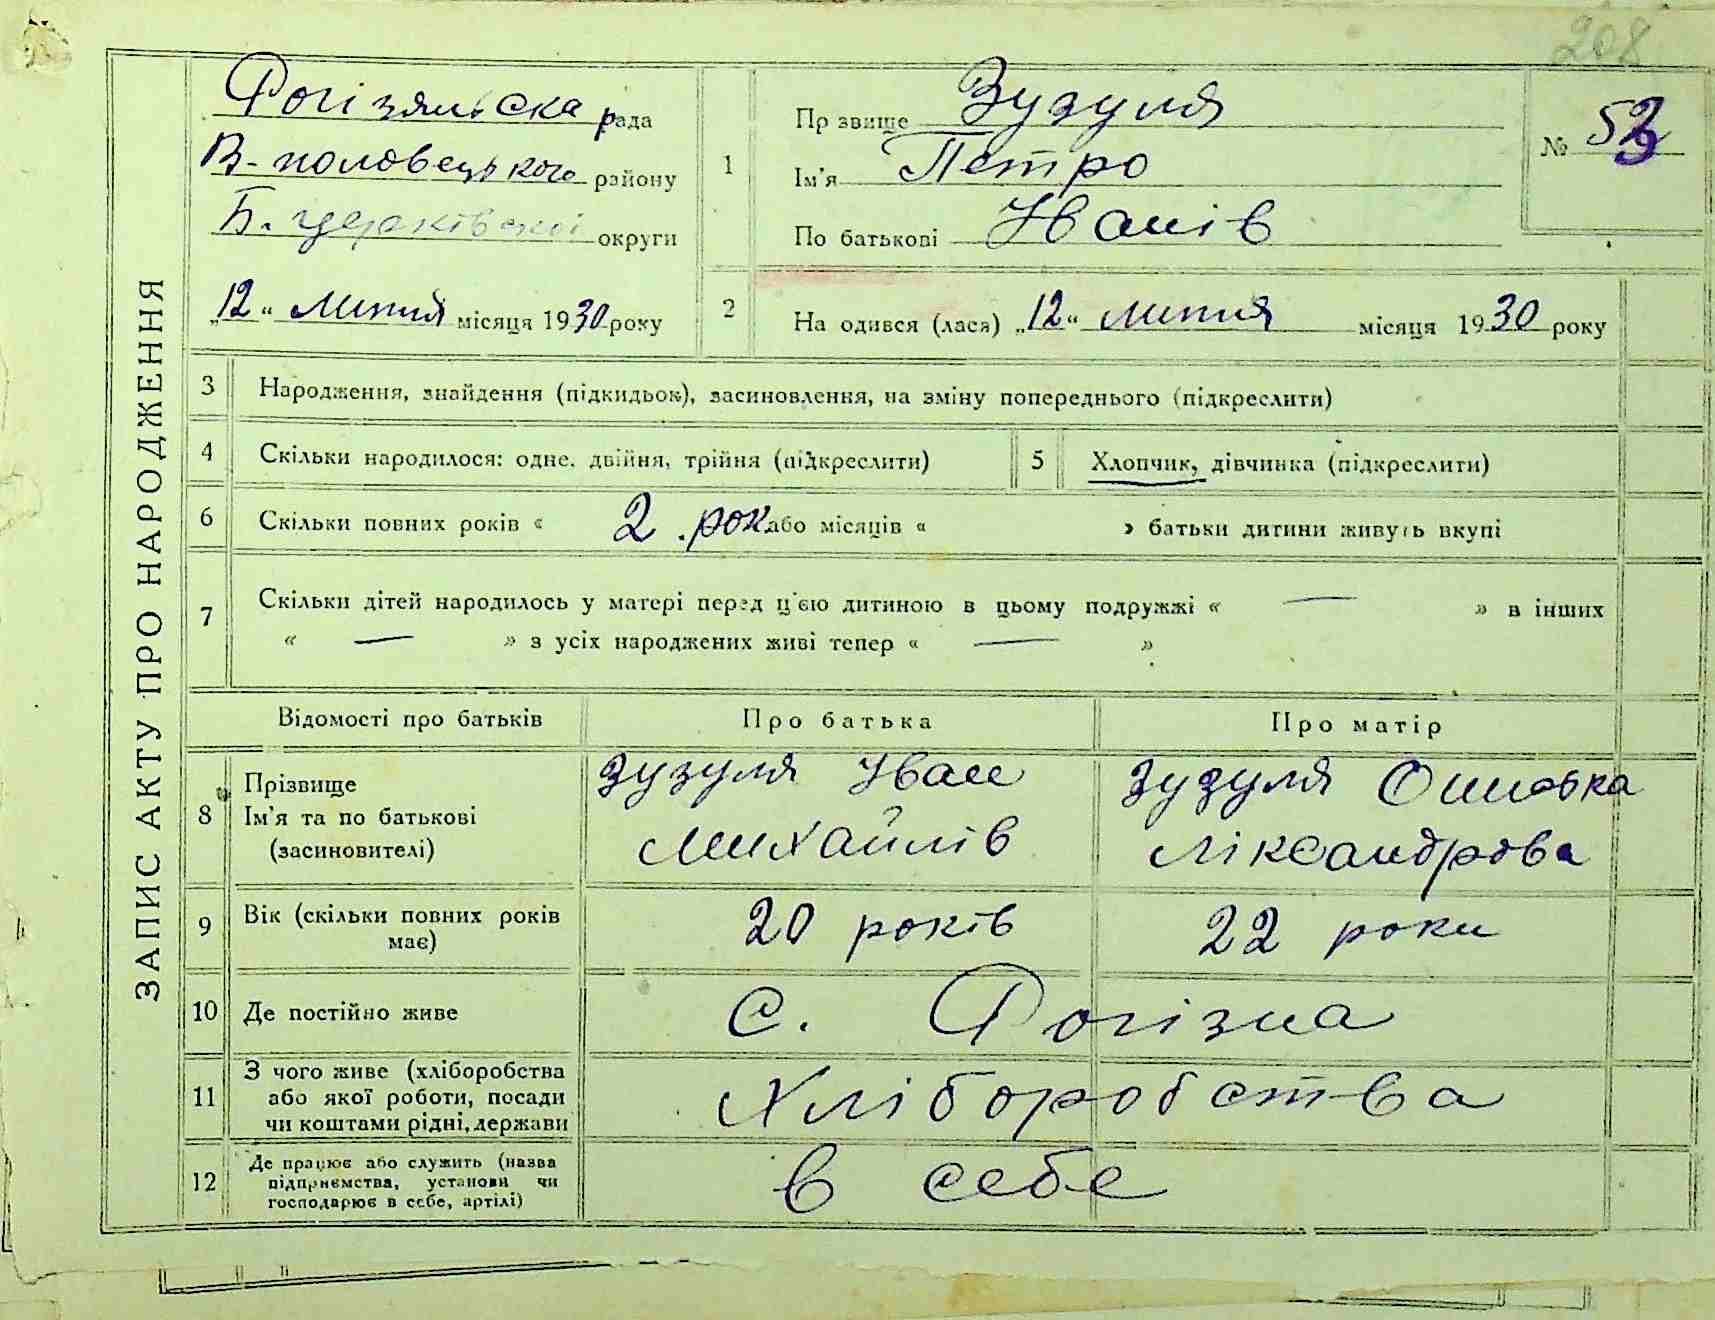 208
ЗАПИС АКТУ ПРО НАРОДЖЕННЯ
Рогізянська рада
В-половецького району
Б. церківської округи
„12“ липня місяця 1930 року
1
Пр звище Зузуля
Ім'я Петро
По батькові Іванів
№ 53
2
На одився (лася) „12“ липня місяця 1930 року
3 Народження, знайдення (підкидьок), засиновлення, на зміну попереднього (підкреслити)
4 Скільки народилося: одне, двійня, трійня (підкреслити) 5 Хлопчик, дівчинка (підкреслити)
6 Скільки повних років « 2. рок або місяців « » батьки дитини живуть вкупі
7 Скільки дітей народилось у матері перед ц'єю дитиною в цьому подружжі « — » в інших
« — » з усіх народжених живі тепер « — »
Відомості про батьків Про батька Про матір
8 Прізвище
Ім'я та по батькові
(засиновителі)
Зузуля Іван
Михайлів
Зузуля
Ліксандрова
9 Вік (скільки повних років
має)
20 років 22 роки
10 Де постійно живе с. Рогізна
11 З чого живе (хліборобства
або якої роботи, посади
чи коштами рідні, держави
Хліборобства
12 Де працює або служить (назва
підприємства, установи чи
господарює в себе, артілі)
в себе